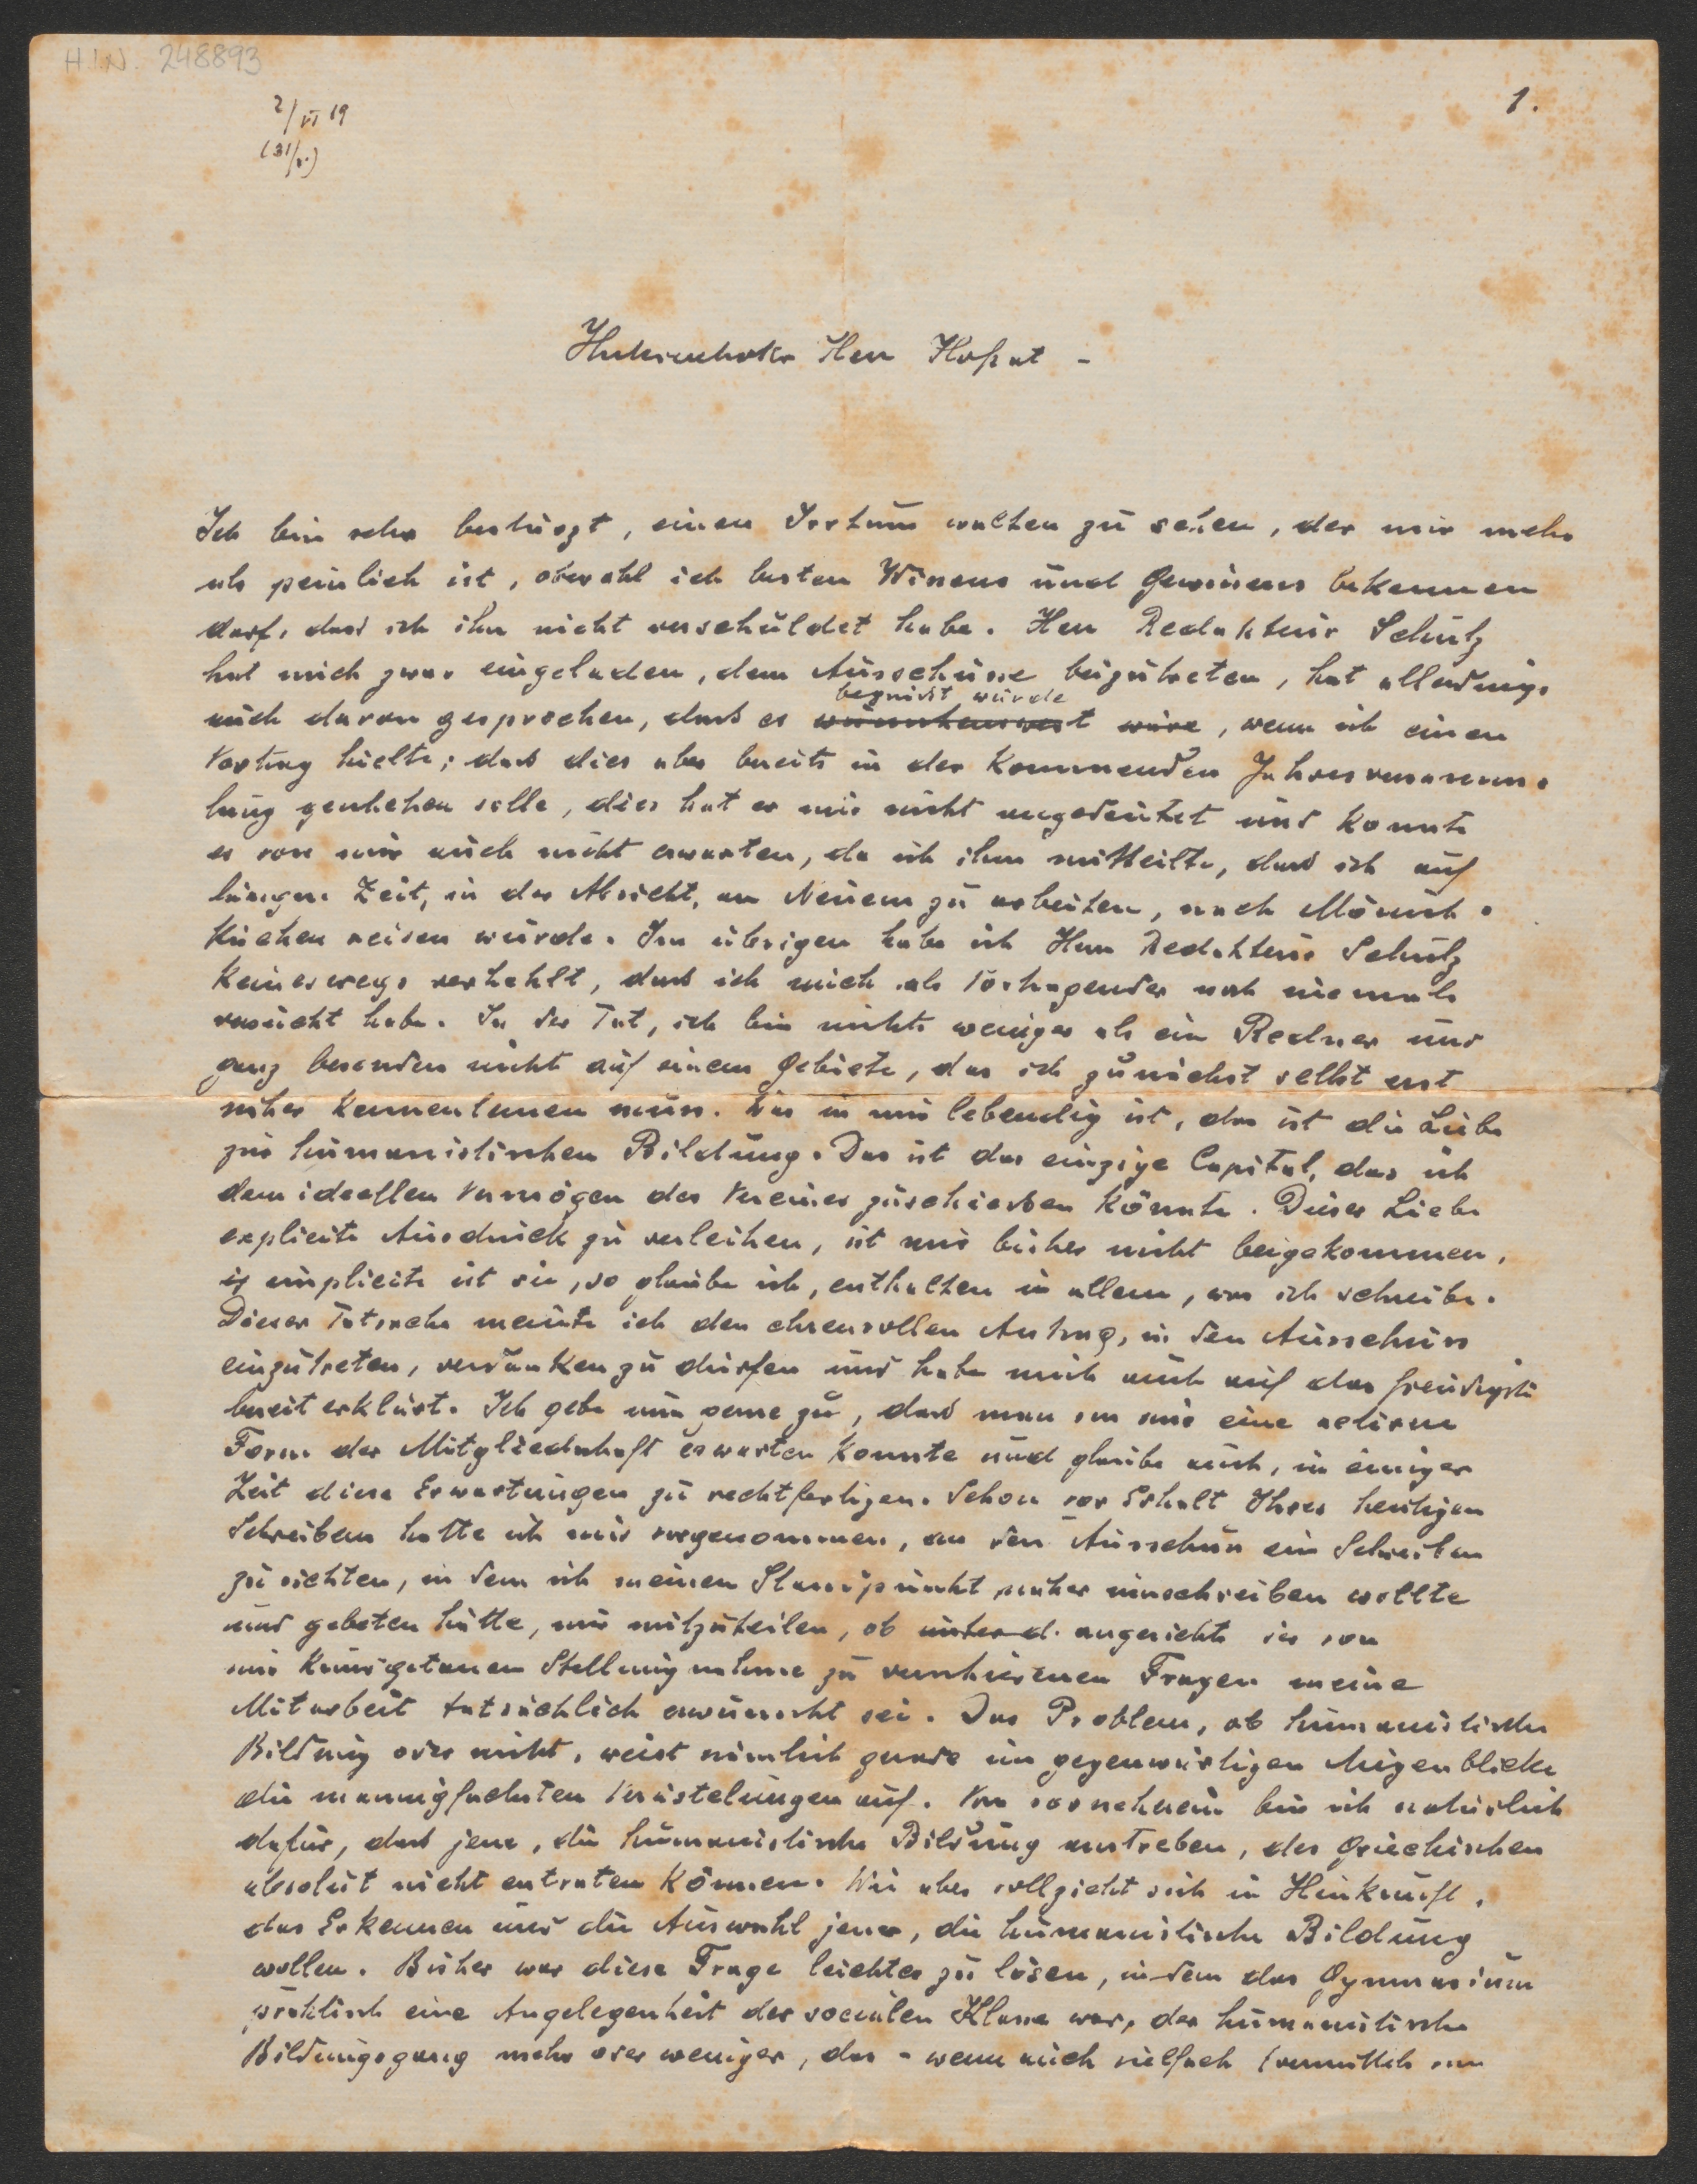 H.I.N. 248893
2/VI 19
(31/V.)
1.
Hochverehrter Herr Hofrat –
Ich bin sehr bestürzt, einen Irrtum walten zu sehen, der mir mehr
als peinlich ist, obwohl ich besten Wissens und Gewissens bekennen
darf, dass ich ihn nicht verschuldet habe. Herr Redakteur Schulz
hat mich zwar eingeladen, dem Ausschusse beizutreten, hat allerdings
begrüsst würde
auch davon gesprochen, dass es wünschenswert wäre, wenn ich einen
Vortrag hielte; dass dies aber bereits in der kommenden Jahresversamm-
lung geschehen solle, dies hat er mir nicht angedeutet und konnte
es von mir auch nicht erwarten, da ich ihm mitteilte, dass ich auf
längere Zeit, in der Absicht, an Neuem zu arbeiten, nach Mönich-
kirchen reisen würde. Im übrigen habe ich Herrn Redakteur Schulz
keineswegs verhehlt, dass ich mich als Vortragender noch niemals
versucht habe. In der Tat, ich bin nichts weniger als ein Redner und
ganz besonders nicht auf einem Gebiete, das ich zunächst selbst erst
näher kennenlernen muss. Was in mir lebendig ist, das ist die Liebe
zur humanistischen Bildung. Das ist das einzige Capital, das ich
dem ideellen Vermögen des Vereines zuschiessen könnte. Dieser Liebe
explicite Ausdruck zu verleihen, ist mir bisher nicht beigekommen,
implicite ist sie, so glaube ich, enthalten in allem, was ich schreibe.
Dieser Tatsache meinte ich den ehrenvollen Antrag, in den Ausschuss
einzutreten, verdanken zu dürfen und habe mich auch auf das freudigste
bereit erklärt. Ich gebe nun gerne zu, dass man von mir eine activere
Form der Mitgliedschaft erwarten konnte und glaube auch, in einiger
Zeit diese Erwartungen zu rechtfertigen. Schon vor Erhalt Ihres heutigen
Schreibens hatte ich mir vorgenommen, an den Ausschuss ein Schreiben
zu richten, in dem ich meinen Standpunkt näher umschreiben wollte
und gebeten hätte, mir mitzuteilen, ob unter d. angesichts der von
mir kundgetanen Stellungnahme zu verschiedenen Fragen meine
Mitarbeit tatsächlich erwünscht sei. Das Problem, ob humanistische
Bildung oder nicht, weist nämlich gerade im gegenwärtigen Augenblicke
die mannigfachsten Verästelungen auf. Von vorneherein bin ich natürlich
dafür, dass jene, die humanistische Bildung anstreben, des Griechischen
absolut nicht entraten können. Wie aber vollzieht sich in Hinkunft
das Erkennen und die Auswahl jener, die humanistische Bildung
wollen. Bisher war diese Frage leichter zu lösen, indem das Gymnasium
praktisch eine Angelegenheit der socialen Klasse war, der humanistische
Bildungsgang mehr oder weniger, das – wenn auch vielfach (vermittels von